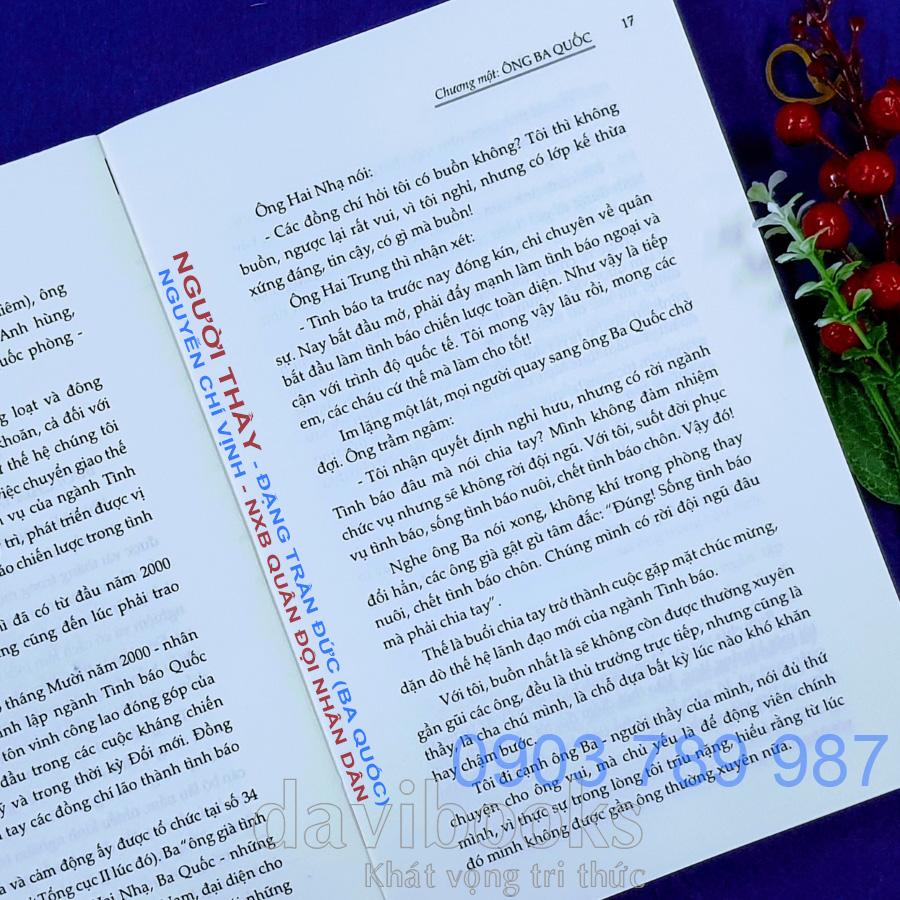 iêm), ông
Anh hùng,
uốc phòng -
g loạt và đông
khoăn, cả đối với
ư thế hệ chúng tôi
việc chuyển giao thế
m vụ của ngành Tình
y trì, phát triển được vị
báo chiến lược trong tình
hì đã có từ đầu năm 2000
ng cũng đến lúc phải trao
tháng Mười năm 2000 - nhân
nh lập ngành Tình báo Quốc
tôn vinh công lao đóng góp của
đầu trong các cuộc kháng chiến
ỹ và trong thời kỳ Đổi mới. Đồng
tay các đồng chí lão thành tình báo
a và cảm động ấy được tổ chức tại số 34
Tổng cục II lúc đó). Ba “ông già tình
Hai Nhạ, Ba Quốc - những
Nam, đại diện cho
những
17
Chương một: ÔNG BA QUỐC
Ông Hai Nhạ nói:
- Các đồng chí hỏi tôi có buồn không? Tôi thì không
buồn, ngược lại rất vui, vì tôi nghỉ, nhưng có lớp kế thừa
xứng đáng, tin cậy, có gì mà buồn!
Ông Hai Trung thì nhận xét:
- Tình báo ta trước nay đóng kín, chỉ chuyên về quân
sự. Nay bắt đầu mở, phải đẩy mạnh làm tình báo ngoại và
bắt đầu làm tình báo chiến lược toàn diện. Như vậy là tiếp
cận với trình độ quốc tế. Tôi mong vậy lâu rồi, mong các
em, các cháu cứ thế mà làm cho tốt!
Im lặng một lát, mọi người quay sang ông Ba Quốc chờ
đợi. Ông trầm ngâm:
- Tôi nhận quyết định nghỉ hưu, nhưng có rời ngành
Tình báo đâu mà nói chia tay? Mình không đảm nhiệm
chức vụ nhưng sẽ không rời đội ngũ. Với tôi, suốt đời phục
vụ tình báo, sống tình báo nuôi, chết tình báo chôn. Vậy đó!
Nghe ông Ba nói xong, không khí trong phòng thay
đổi hẳn, các ông già gật gù tâm đắc: “Đúng! Sống tình báo
nuôi, chết tình báo chôn. Chúng mình có rời đội ngũ đâu
mà phải chia tay”.
Thế là buổi chia tay trở thành cuộc gặp mặt chúc mừng,
dặn dò thế hệ lãnh đạo mới của ngành Tình báo.
Với tôi, buồn nhất là sẽ không còn được thường xuyên
gần gũi các ông, đều là thủ trưởng trực tiếp, nhưng cũng là
thầy, là cha chú mình, là chỗ dựa bất kỳ lúc nào khó khăn
hay chậm bước.
Tôi đi cạnh ông Ba - người thầy của mình, nói đủ thứ
chuyện cho ông vui, mà chủ yếu là để động viên chính
mình, vì thực sự trong lòng tôi trĩu nặng, hiểu rằng từ lúc
đó mình không được gần ông thường xuyên nữa.
NGƯỜI THẦY - ĐẶNG TRẦN ĐỨC (BA QUỐC)
NGUYỄN CHÍ VỊNH - NXB QUÂN ĐỘI NHÂN DÂN
0903 789 987
davibooks
Khát vọng tri thức